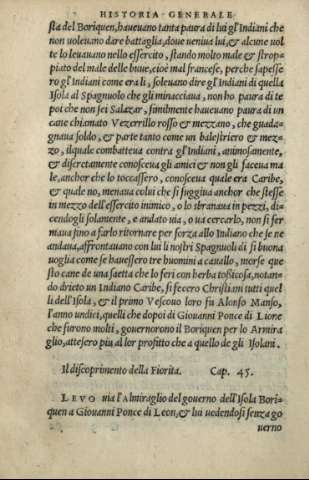 HISTORIA GENERALE
sta del Boriquen, haueuano tanta paura di lui gl'Indiani che
non uoleuano dare battaglia, doue veniua lui, & alcune uol
te lo leuauano nello essercito, stando molto male & strop-
piato del male delle biue, cioè mal francese, perche sapesse
ro gl'Indiani come era li, soleuano dire gl'Indiani di quella
Isola al Spagnuolo che gli minacciaua, non ho paura di te
poi che non sei Salazar, similmente haueuano paura di un
cane chiamato Vezerrillo rosso & mezzano, che guada-
gnaua soldo, & parte tanto come un balestriero & mez-
zo, il quale combatteua contra gl'Indiani, animosamente,
& discretamente conosceua gli amici & non gli faceua ma
le, anchor che lo toccassero, conosceua quale era Caribe,
& quale no, menaua colui che si fuggiua anchor che stesse
in mezzo dell'essercito inimico, o lo sbranaua in pezzi, di-
cendogli solamente, e andato uia, o ua cercarlo, non si fer
maua fino a farlo ritornare per forza allo Indiano che se ne
andaua, affrontauano con lui li nostri Spagnuoli di si buona
uoglia come se hauessero tre huomini a cauallo, morse que
sto cane de una saetta che lo feri con herba tossicosa, notan-
do drieto un Indiano Caribe, si fecero Christiani tutti quel
li dell'Isola, & il primo Vescouo loro fu Alonso Manso,
l'anno undici, quelli che dopoi di Giouanni Ponce di Lione
che furono molti, gouernorono il Boriquen per lo Armira
glio, attesero piu al lor profitto che a quello de gli Isolani.
Il discoprimento della Fiorita. Cap. 45.
LEVO uia l'Almiraglio del gouerno dell'Isola Bori-
quen a Giouanni Ponce di Leon, & lui uedendosi senza go
uerno